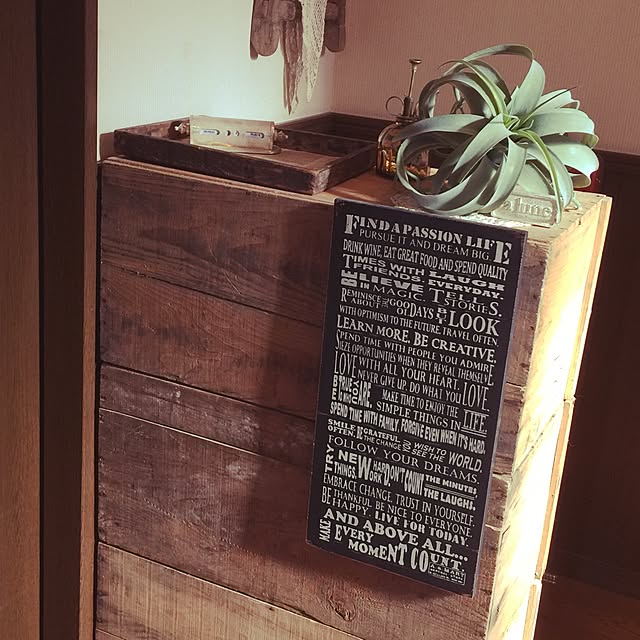 FIND A PASSION LIFE
PURSUE IT AND DREAM BIG.
DRINK WINE, EAT GREAT FOOD AND SPEND QUALITY
TIMES WITH LAUGH
FRIENDS. EVERYDAY.
BELIEVE TELL
IN MAGIC. STORIES.
REMINISCE THE GOOD BY LOOK
ABOUT OL' DAYS
WITH OPTIMISM TO THE FUTURE. TRAVEL OFTEN
LEARN MORE. BE CREATIVE.
SPEND TIME WITH PEOPLE YOU ADMIRE
SEIZE OPPORTUNITIES WHEN THEY REVEAL THEMSELVES
LOVE WITH ALL YOUR HEART.
NEVER GIVE UP. DO WHAT YOU LOVE
BE TRUE TO WHO YOU ARE MAKE TIME TO ENJOY THE
SIMPLE THINGS IN LIFE.
SPEND TIME WITH FAMILY, FORGIVE EVEN WHEN IT'S HARD.
SMILE BE GRATEFUL. WISH TO WORLD,
OFTEN. BE THE CHANGE YOU SEE THE
FOLLOW YOUR DREAMS.
TRY NEW WORK HARD DON'T COUNT THE MINUTES
THINGS. THE LAUGHS.
EMBRACE CHANGE. TRUST IN YOURSELF.
BE THANKFUL. BE NICE TO EVERYONE.
BE HAPPY. LIVE FOR TODAY.
AND ABOVE ALL...
MAKE EVERY
MOMENT COUNT